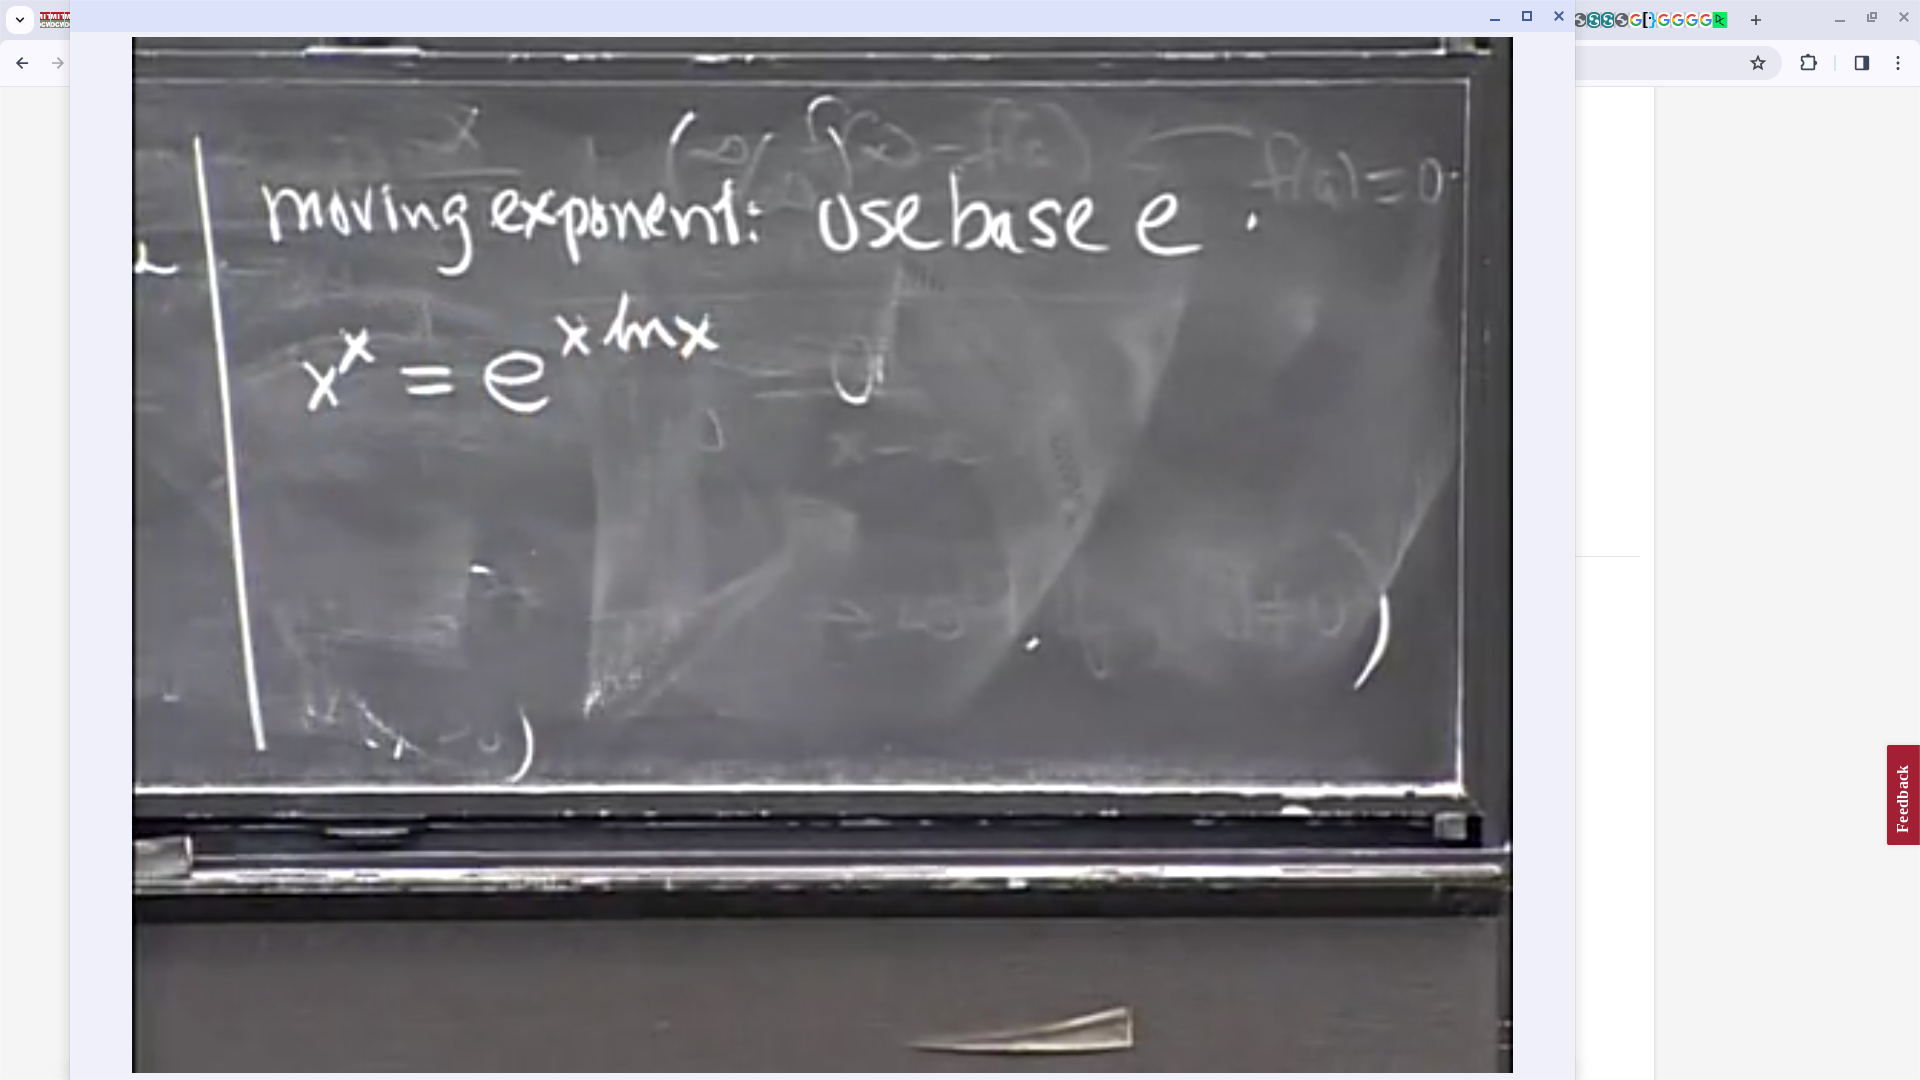 moving exponent: use base e .
x^x = e^{x ln x}
f(x) - f(a)
f(a) = 0
Feedback